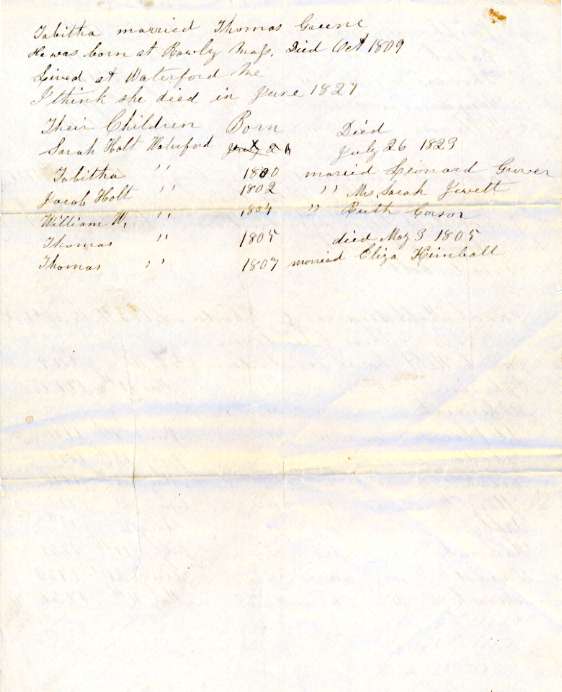 Tabitha married Thomas Greene
He was born at Rowly Mass. Died Oct 1809
Lived at Waterford Me
I think she died in June 1827
Their Children Born Died
Sarah Holt Waterford July 26 1823
Tabitha " 1800 married Leonard Grover
Jacob Holt " 1802 " Ms. Sarah Jewett
William W. " 1804 " Ruth
Thomas " 1805 died May 3 1805
Thomas " 1807 married Eliza Kimball